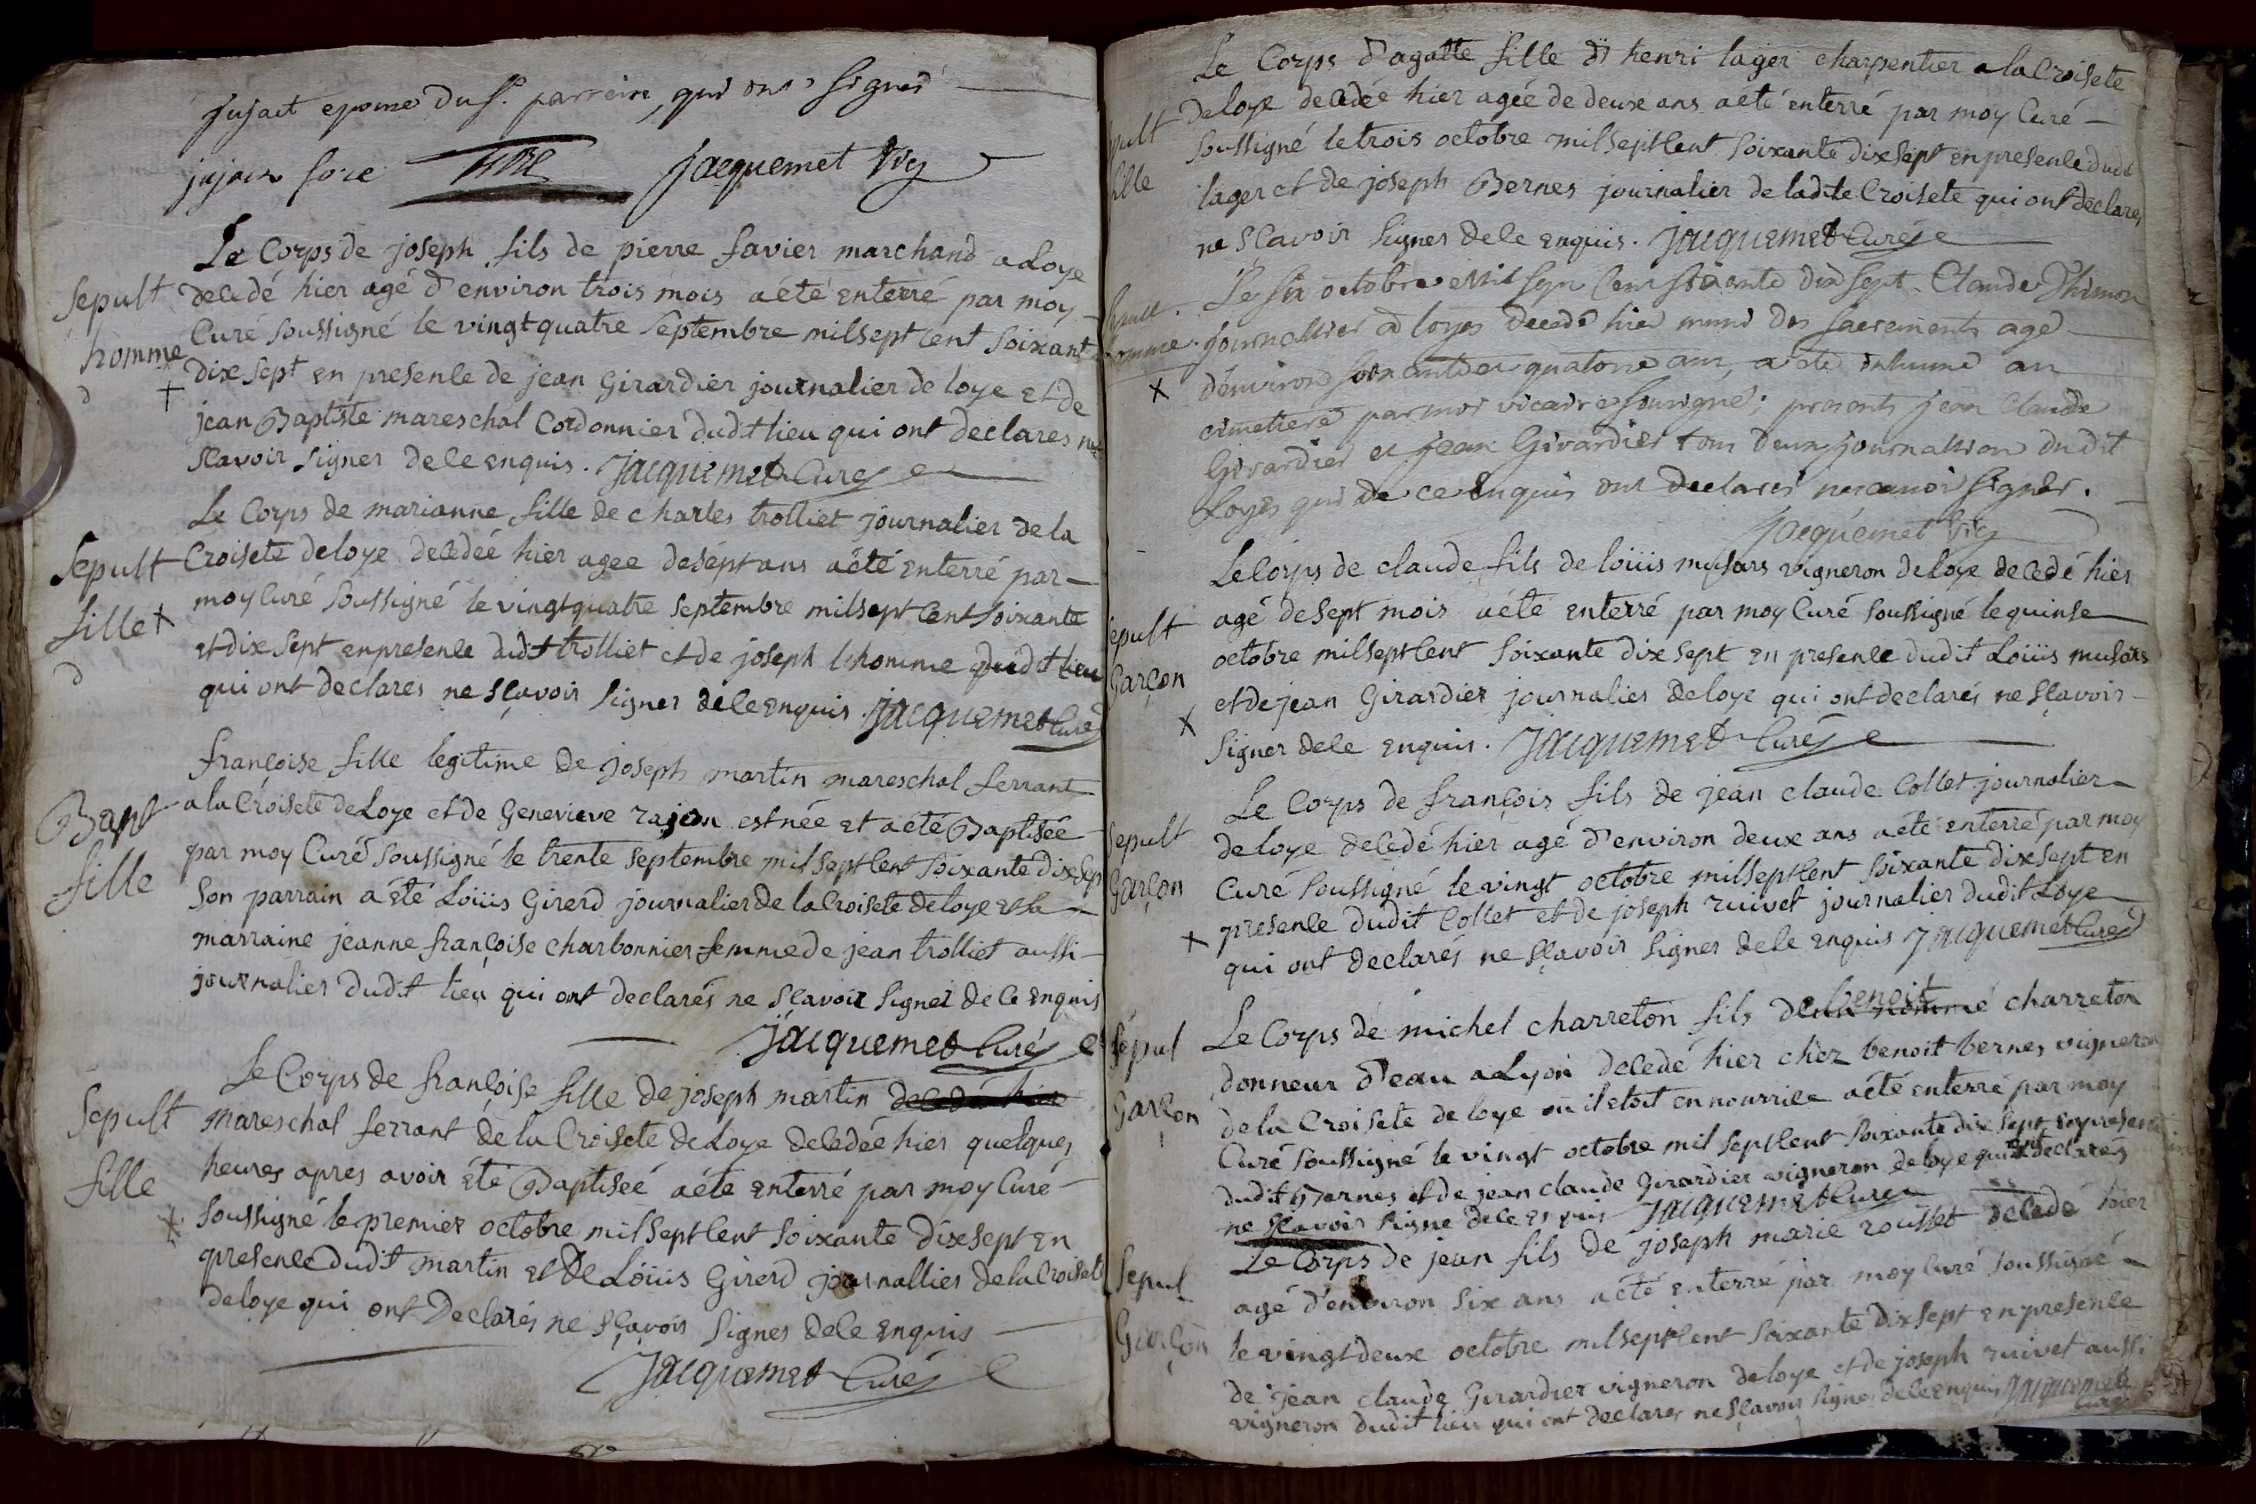 jujait epouse du sr. parrein qui ont signé
jujais fore Jacquemet Vic
Le Corps de joseph fils de pierre favier marchand a Loye
Sepult decedé hier agé d'environ trois mois a été enterré par moy
Curé soussigné le vingt quatre septembre mil sept cent soixant
homme dixsept en presence de jean Girardier journalier de loye et de
jean Baptiste mareschal Cordonnier dudit lieu qui ont declares ne
scavoir signer de ce enquis. Jacquemet Curé
Le Corps de marianne fille de charles trolliet journalier de la
Sepult Croisete deloye decedeé hier agee de sept ans a été enterré par
fille moy Curé soussigné le vingt quatre septembre mil sept cent soixante
et dix sept en presence dudit trolliet et de joseph lhomme dudit lieu
qui ont declares ne sçavoir signer de ce enquis Jacquemet Curé
françoise fille legitime de joseph martin mareschal ferrant
Bapt a la Croisete de Loye et de Genevieve rajon est née et a été Baptisée
par moy Curé soussigné le trente septembre mil sept cent soixante dix sep
fille Son parrain a été Loüis Girerd journalier de la Croisete de loye et la
marraine jeanne françoise charbonnier femme de jean trolliet aussi
journalier dudit lieu qui ont declarés ne scavoir signer de ce enquis
Jacquemet Curé
Le Corps de françoise fille de joseph martin decedé hier
Sepult mareschal ferrant de la Croisete de Loye decedée hier quelques
fille heures apres avoir été Baptiseé a été enterré par moy Curé
soussigné le premier octobre mil sept cent soixante dix sept en
presence dudit martin et de Loüis Girerd journallier de la Croisete
de loye qui ont declarés ne sçavoir signer de ce enquis
Jacquemet Curé
Le Corps d'agatte fille di henri lager charpentier a la Croisete
pult deloye decedeé hier agée de deux ans a été enterré par moy Curé
fille soussigné le trois octobre mil sept cent soixante dix sept en presence dudt
lager et de joseph Bernes journalier de ladite Croisete qui ont declares
ne sçavoir signer de ce enquis. Jacquemet Curé
Le six octobre mil sept cent soixante dix sept Claude Thimon
homme journallier a loyes decedé hier muni des sacrements agé
d'environ soixante et quatorze ans, a été inhumé au
cimetiere par moi vicaire soussigné; presents jean Claude
Girardier et jean Girardier tous deux journaliers du dit
Loyes qui de ce enquis ont declarés ne scavoir signer.
Jacquemet Vic
Le Corps de claude fils de loüis musars vigneron de loye decedé hier
Sepult agé de sept mois a été enterré par moy Curé soussigné le quinse
Garçon octobre mil sept cent soixante dix sept en presence dudit Loüis musars
et de jean Girardier journalier de loye qui ont declarés ne sçavoir
signer de ce enquis. Jacquemet Curé
Le Corps de françois fils de jean claude Collet journalier
Sepult deloye decedé hier agé d'environ deux ans a été enterré par moy
Garçon Curé soussigné le vingt octobre mil sept cent soixante dix sept en
presence dudit Collet et de joseph ruivet journalier dudit Loye
qui ont declarés ne sçavoir signer de ce enquis Jacquemet Curé
benoit
Sepul Le Corps de michel charreton fils de un nommé charreton
donneur d'eau a Lyon decedé hier chez benoit bernes vigneron
Garçon de la Croisete de loye ou il etoit en nourrice a été enterré par moy
Curé soussigné le vingt octobre mil sept cent soixante dix sept en presence
dudit Bernes et de jean claude Girardier vigneron de loye qui ont declarés
ne sçavoir signe de ce enquis Jacquemet Curé
Le Corps de jean fils de joseph marie rousset decedé hier
Sepul agé d'environ six ans a été enterré par moy Curé soussigné
Garçon le vingt deux octobre mil sept cent soixante dix sept en presence
de jean claude Girardier vigneron deloye et de joseph ruivet aussi
vigneron dudit lieu qui ont declares ne sçavoir signer de ce enquis Jacquemet
Curé